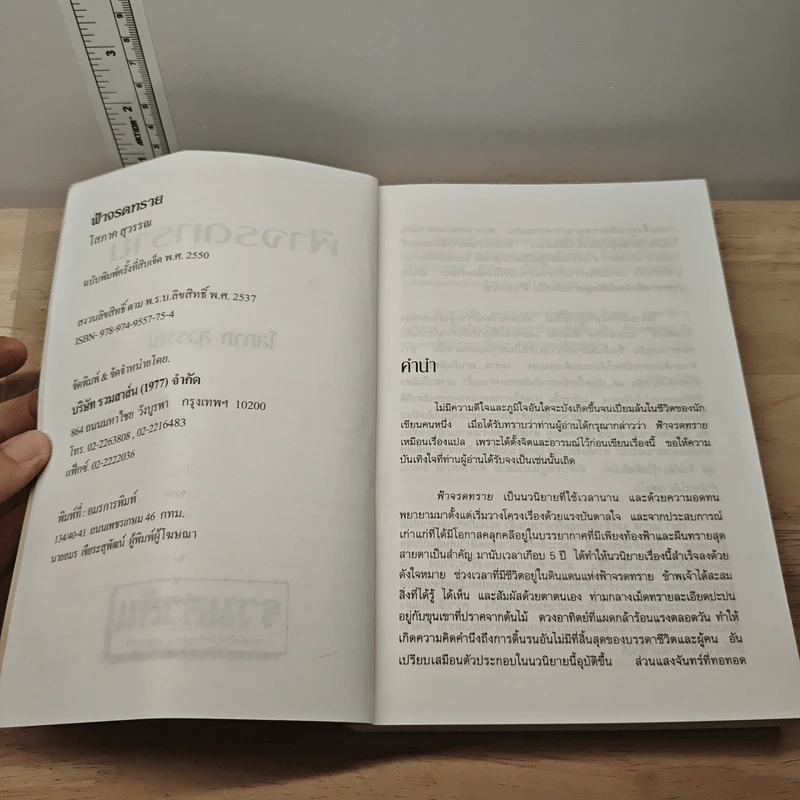 ฟ้าจรดทราย
โสภาค สุวรรณ
ฉบับพิมพ์ครั้งที่สิบเจ็ด พ.ศ. 2550
สงวนลิขสิทธิ์ ตาม พ.ร.บ.ลิขสิทธิ์ พ.ศ. 2537
ISBN- 978-974-9557-75-4
จัดพิมพ์ & จัดจำหน่ายโดย.
บริษัท รวมสาส์น (1977) จำกัด
864 ถนนมหาไชย วังบูรพา กรุงเทพฯ 10200
โทร. 02-2263808 , 02-2216483
แฟ็กซ์. 02-2222036
พิมพ์ที่ : อมรการพิมพ์
134/40-41 ถนนเพชรเกษม 46 กทม.
นายอมร เจียระสุพัฒน์ ผู้พิมพ์ผู้โฆษณา
คำนำ
ไม่มีความดีใจและภูมิใจอันใดจะบังเกิดขึ้นจนเปี่ยมล้นในชีวิตของนัก
เขียนคนหนึ่ง เมื่อได้รับทราบว่าท่านผู้อ่านได้กรุณากล่าวว่า ฟ้าจรดทราย
เหมือนเรื่องแปล เพราะได้ตั้งจิตและอารมณ์ไว้ก่อนเขียนเรื่องนี้ ขอให้ความ
บันเทิงใจที่ท่านผู้อ่านได้รับจงเป็นเช่นนั้นเถิด
ฟ้าจรดทราย เป็นนวนิยายที่ใช้เวลานาน และด้วยความอดทน
พยายามมาตั้งแต่เริ่มวางโครงเรื่องด้วยแรงบันดาลใจ และจากประสบการณ์
เก่าแก่ที่ได้มีโอกาสคลุกคลีอยู่ในบรรยากาศที่มีเพียงท้องฟ้าและผืนทรายสุด
สายตาเป็นสำคัญ มานับเวลาเกือบ 5 ปี ได้ทำให้นวนิยายเรื่องนี้สำเร็จลงด้วย
ดังใจหมาย ช่วงเวลาที่มีชีวิตอยู่ในดินแดนแห่งฟ้าจรดทราย ข้าพเจ้าได้สะสม
สิ่งที่ได้รู้ ได้เห็น และสัมผัสด้วยตาตนเอง ท่ามกลางเม็ดทรายละเอียดปะปน
อยู่กับขุนเขาที่ปราศจากต้นไม้ ดวงอาทิตย์ที่แผดกล้าร้อนแรงตลอดวัน ทำให้
เกิดความคิดคำนึงถึงการดิ้นรนอันไม่มีที่สิ้นสุดของบรรดาชีวิตและผู้คน อัน
เปรียบเสมือนตัวประกอบในนวนิยายนี้อุบัติขึ้น ส่วนแสงจันทร์ที่ทอทอด